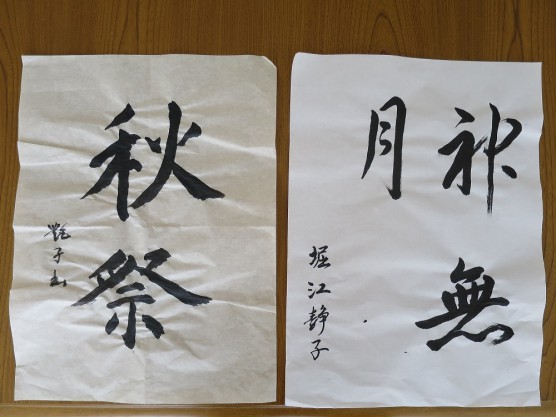 神無
月
堀江静子
秋祭
艶子